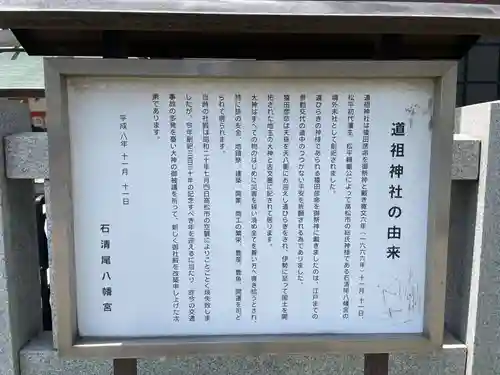 道祖神社の由来
道祖神社は猿田彦命を御祭神と戴き寛文六年(一六六六年)十一月十一日、
松平初代藩主、松平頼重公によって高松市の総氏神様である石清尾八幡宮の
境外末社として創祀されました。
道ひらきの神様であられる猿田彦命を御祭神に戴きましたのは、江戸までの
参勤交代の道中のつつがない平安を祈願される為でありました。
猿田彦命は天孫を天八衢にお迎えし道ひらきをされ、伊勢に至って国土を開
拓された地主の大神と古文書に記されて居ります。
大神はすべての物のはじめに災害を祓い清め全てを善い方へ導き給うとされ、
特に旅の安全、地鎮祭、建築、開業、商工の繁栄、豊産、豊漁、開運を司ど
られて居られます。
当時の社殿は昭和二十年七月四日高松市の空襲によりことごとく焼失致しま
したが、今年創祀三百三十年の記念すべき年を迎えるに当たり、昨今の交通
事故の多発を憂い大神の御被護を祈って、新しく御社殿を改築申し上げた次
第であります。
平成八年十一月十一日
石清尾八幡宮